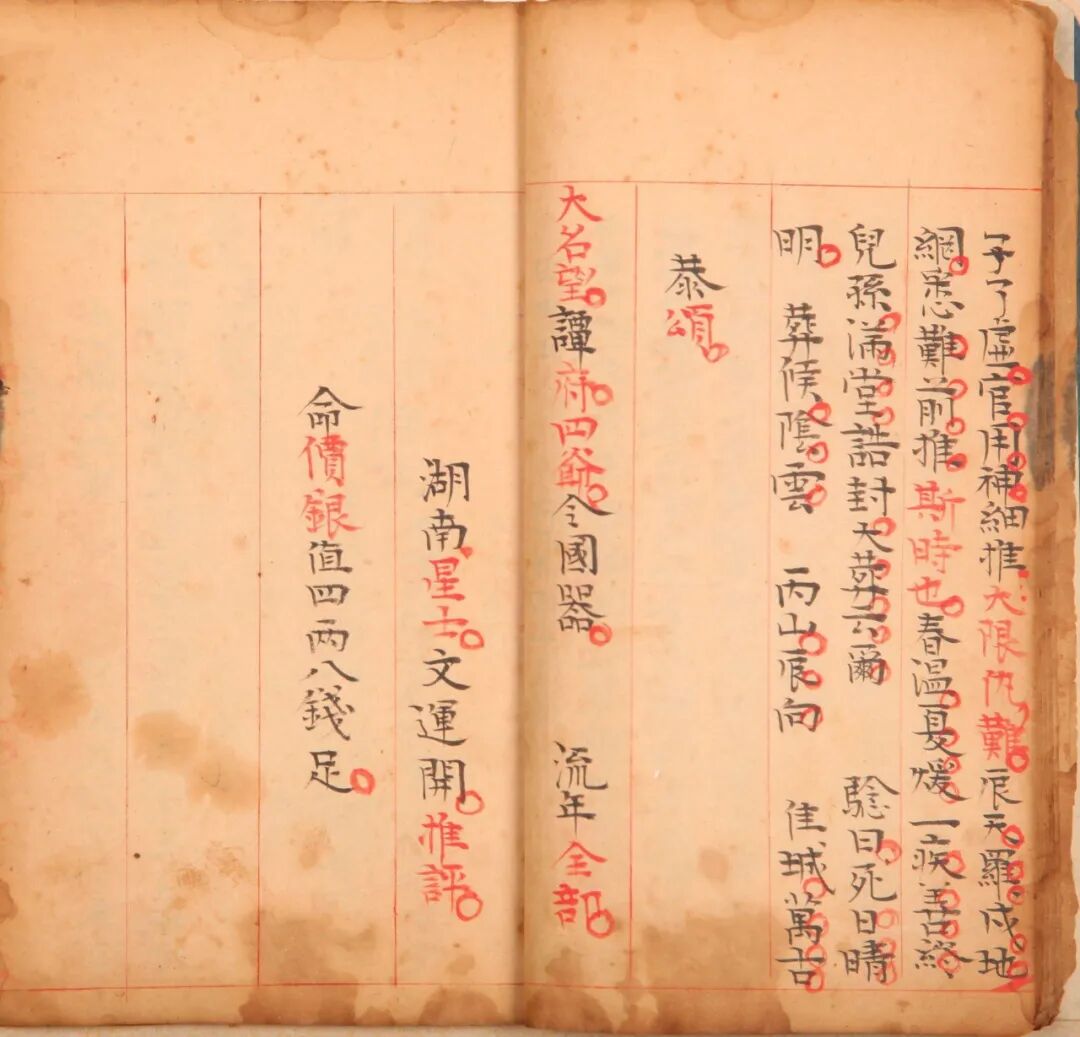 子丁虛官用神細推大限阢難辰天羅戌地
網悉難前推斯時也春温夏煖一疾善終
兒孫滿堂誥封大葬云爾 騐曰死日晴
明 葬候陰雲 丙山辰向 佳城萬古
恭頌
大名望譚府四爺令國器 流年全部
湖南星士文運開推評
命價銀值四兩八錢足